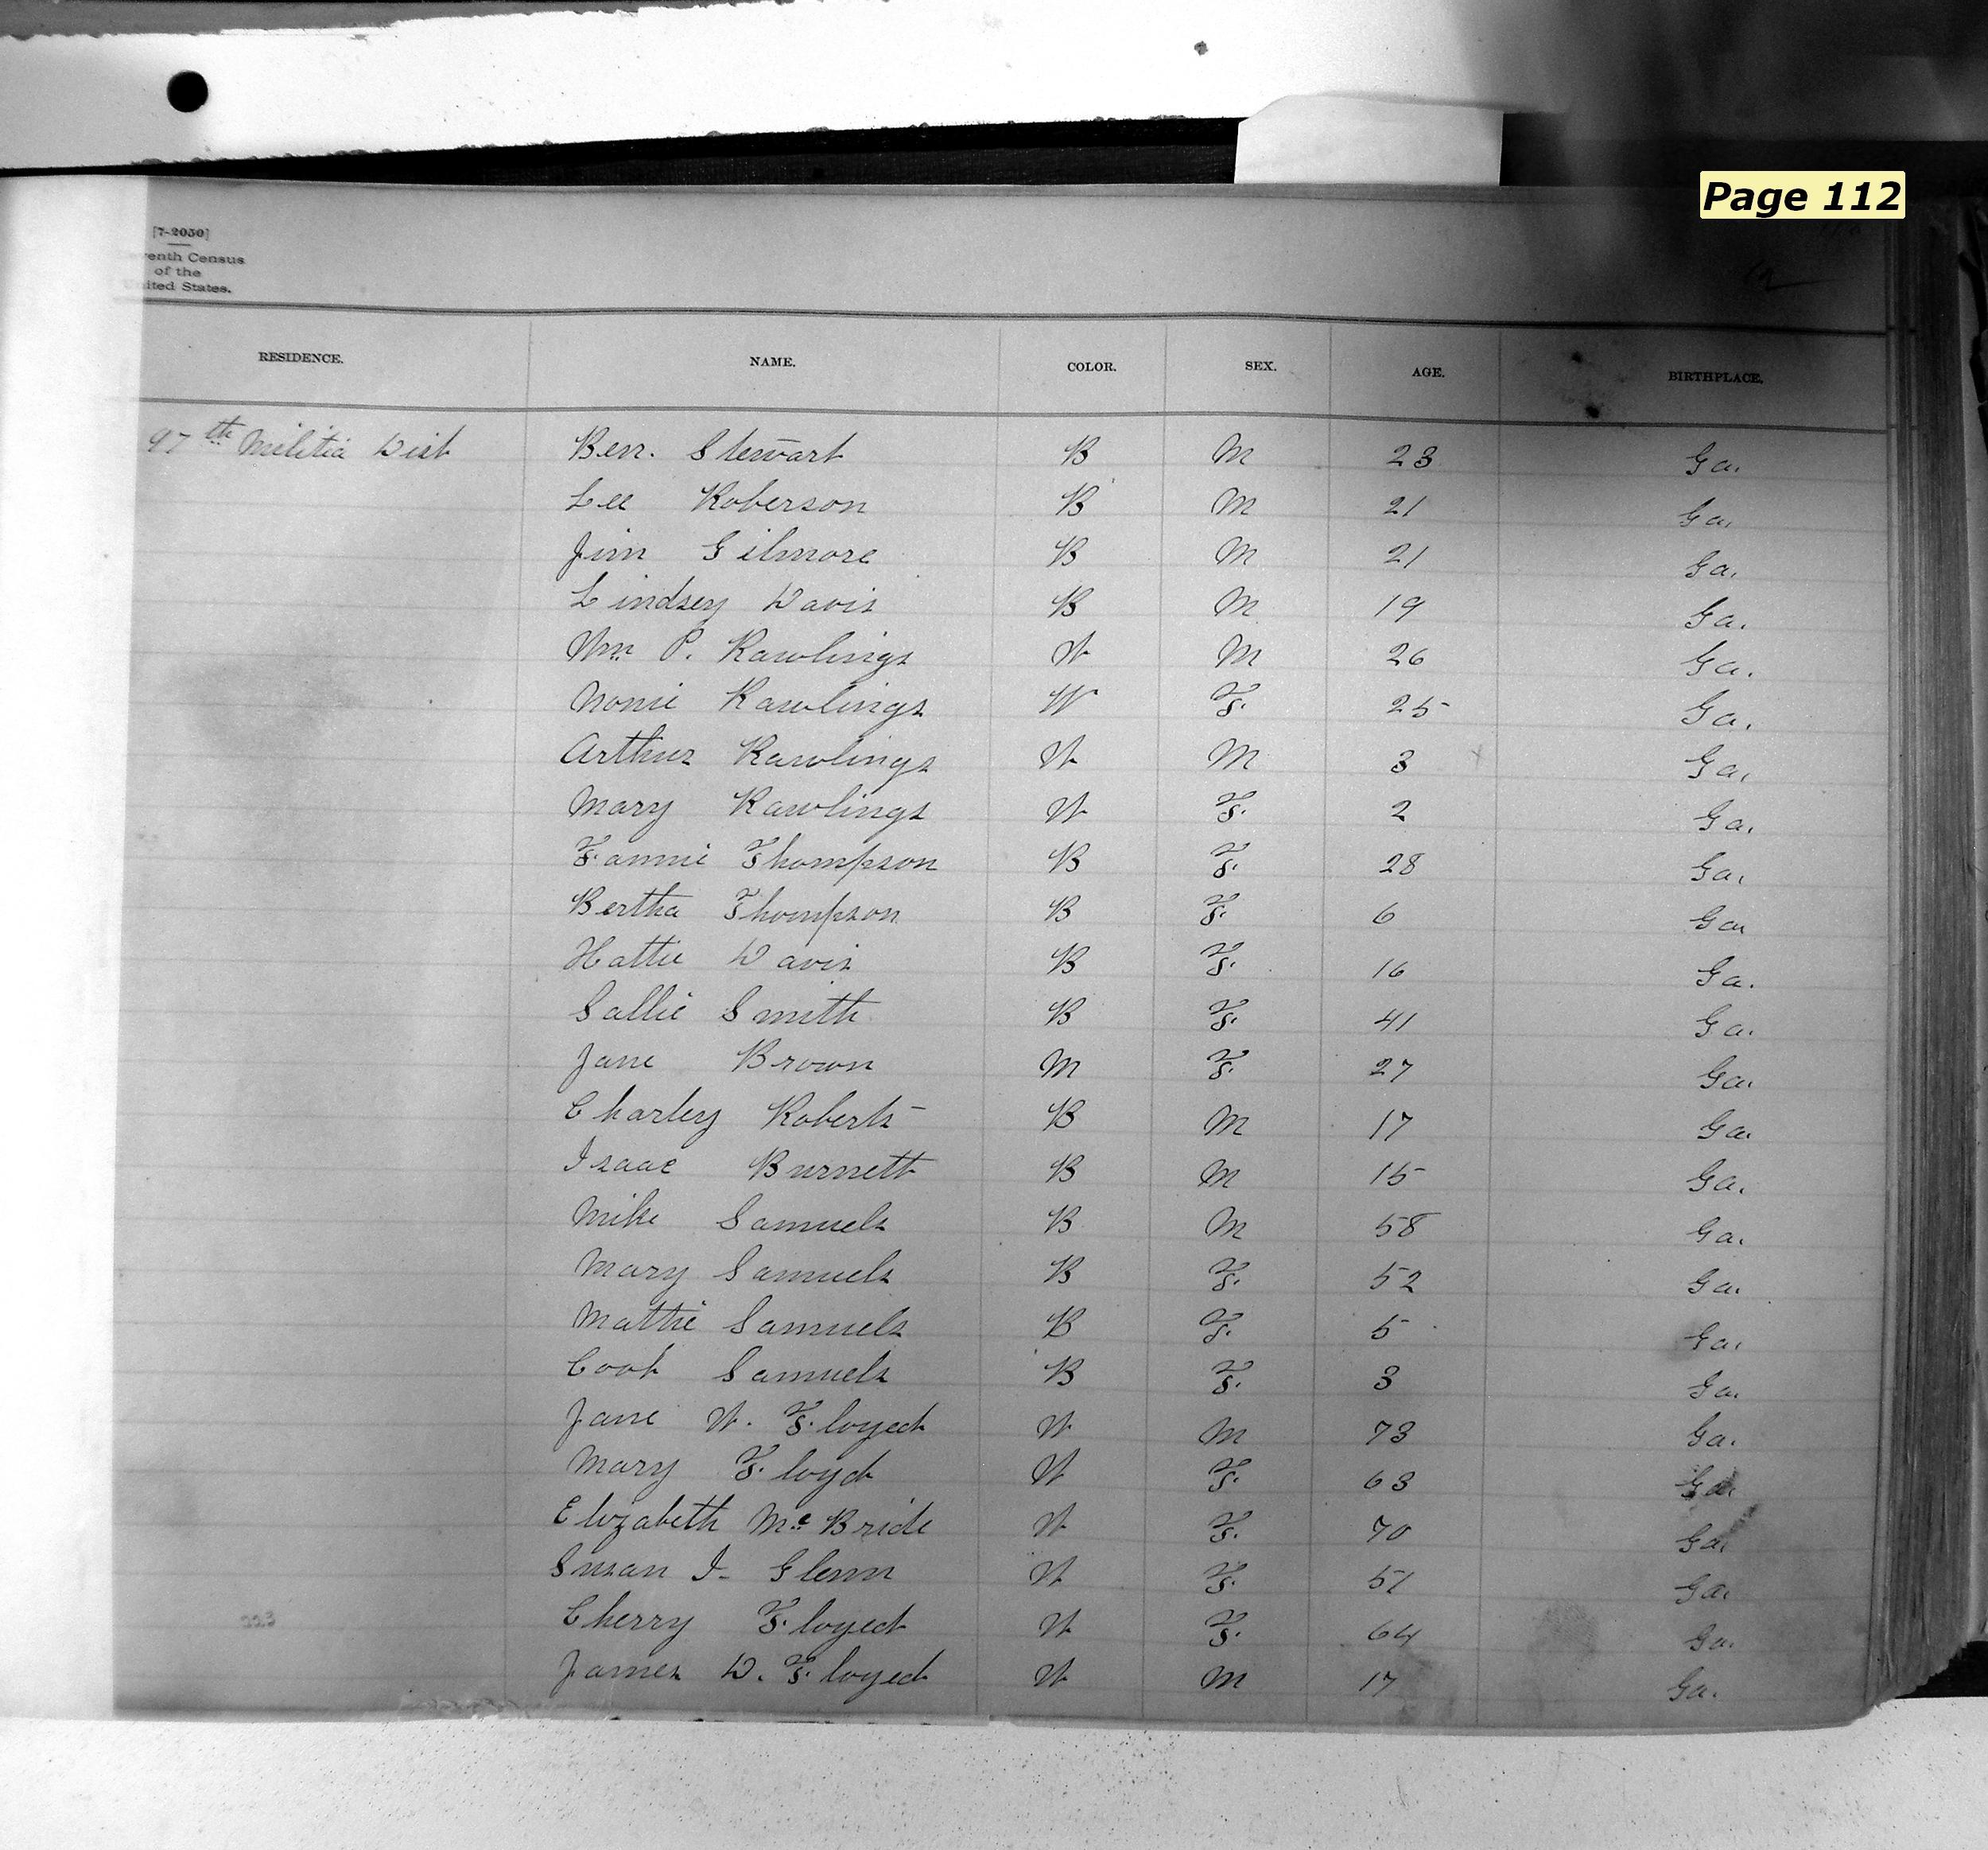 Page 112
[7-2050]
venth Census
of the
United States.
RESIDENCE. NAME. COLOR. SEX. AGE. BIRTHPLACE.
97th Militia Dist Ben. Stewart B M 23 Ga.
Lee Roberson B M 21 Ga.
Jim Gilmore B M 21 Ga.
Lindsey Davis B M 19 Ga.
Wm P. Rawlings W M 26 Ga.
Nonie Rawlings W F. 25 Ga.
Arthur Rawlings W M 3 Ga.
Mary Rawlings W F. 2 Ga.
Fannie Thompson B F. 28 Ga.
Bertha Thompson B F. 6 Ga
Hattie Davis B F. 16 Ga.
Sallie Smith B F. 41 Ga.
Jane Brown M F. 27 Ga.
Charley Roberts B M 17 Ga.
Isaac Burnett B M 15 Ga.
Mike Samuels B M 58 Ga.
Mary Samuels B F. 52 Ga.
Mattie Samuels B F. 5 Ga.
Cook Samuels B F. 3 Ga.
Jane W. Floyed W M 73 Ga.
Mary Floyd W F. 63 Ga.
Elizabeth Mc Bride W F. 70 Ga.
Susan I. Glenn W F. 51 Ga.
Cherry Floyed W F. 64 Ga.
James D. Floyed W M 17 Ga.